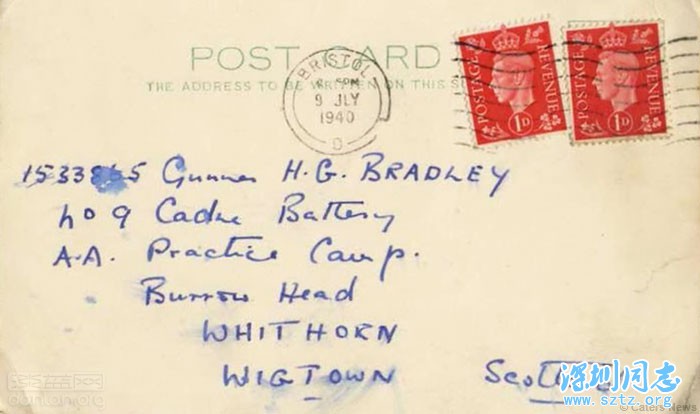 POST CARD
THE ADDRESS TO BE WRITTEN ON THIS
BRISTOL
PM
9 JLY
1940
D
POSTAGE REVENUE
1D
POSTAGE REVENUE
1D
Gunner H.G. BRADLEY
No 9 Cadre Battery
A.A. Practice Camp.
Burrow Head
WHITHORN
WIGTOWN
深圳同志
www.sztz.org
© Caters News